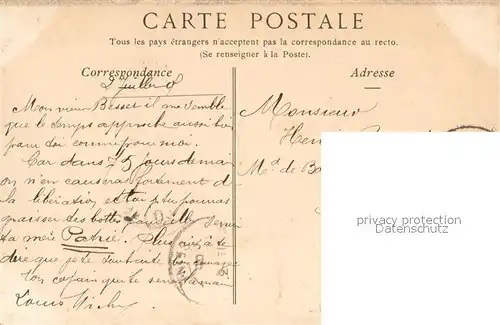 CARTE POSTALE
Tous les pays étrangers n'acceptent pas la correspondance au recto.
(Se renseigner à la Poste).
Correspondance
Adresse
2 Juillet
Mon vieux Besset il me semble
que le temps approche aussi bien
pour toi comme pour moi.
Car dans 75 jours demain
on n'en causera fortement de
la libération et toi tu pourras
graisser des bottes pour aller servir
ta mère Patrie. Plus rien à te
dire que je te souhaite bon courage
Ton copain qui te serre la main
Louis
Monsieur
Henri
Md de
privacy protection
watermark